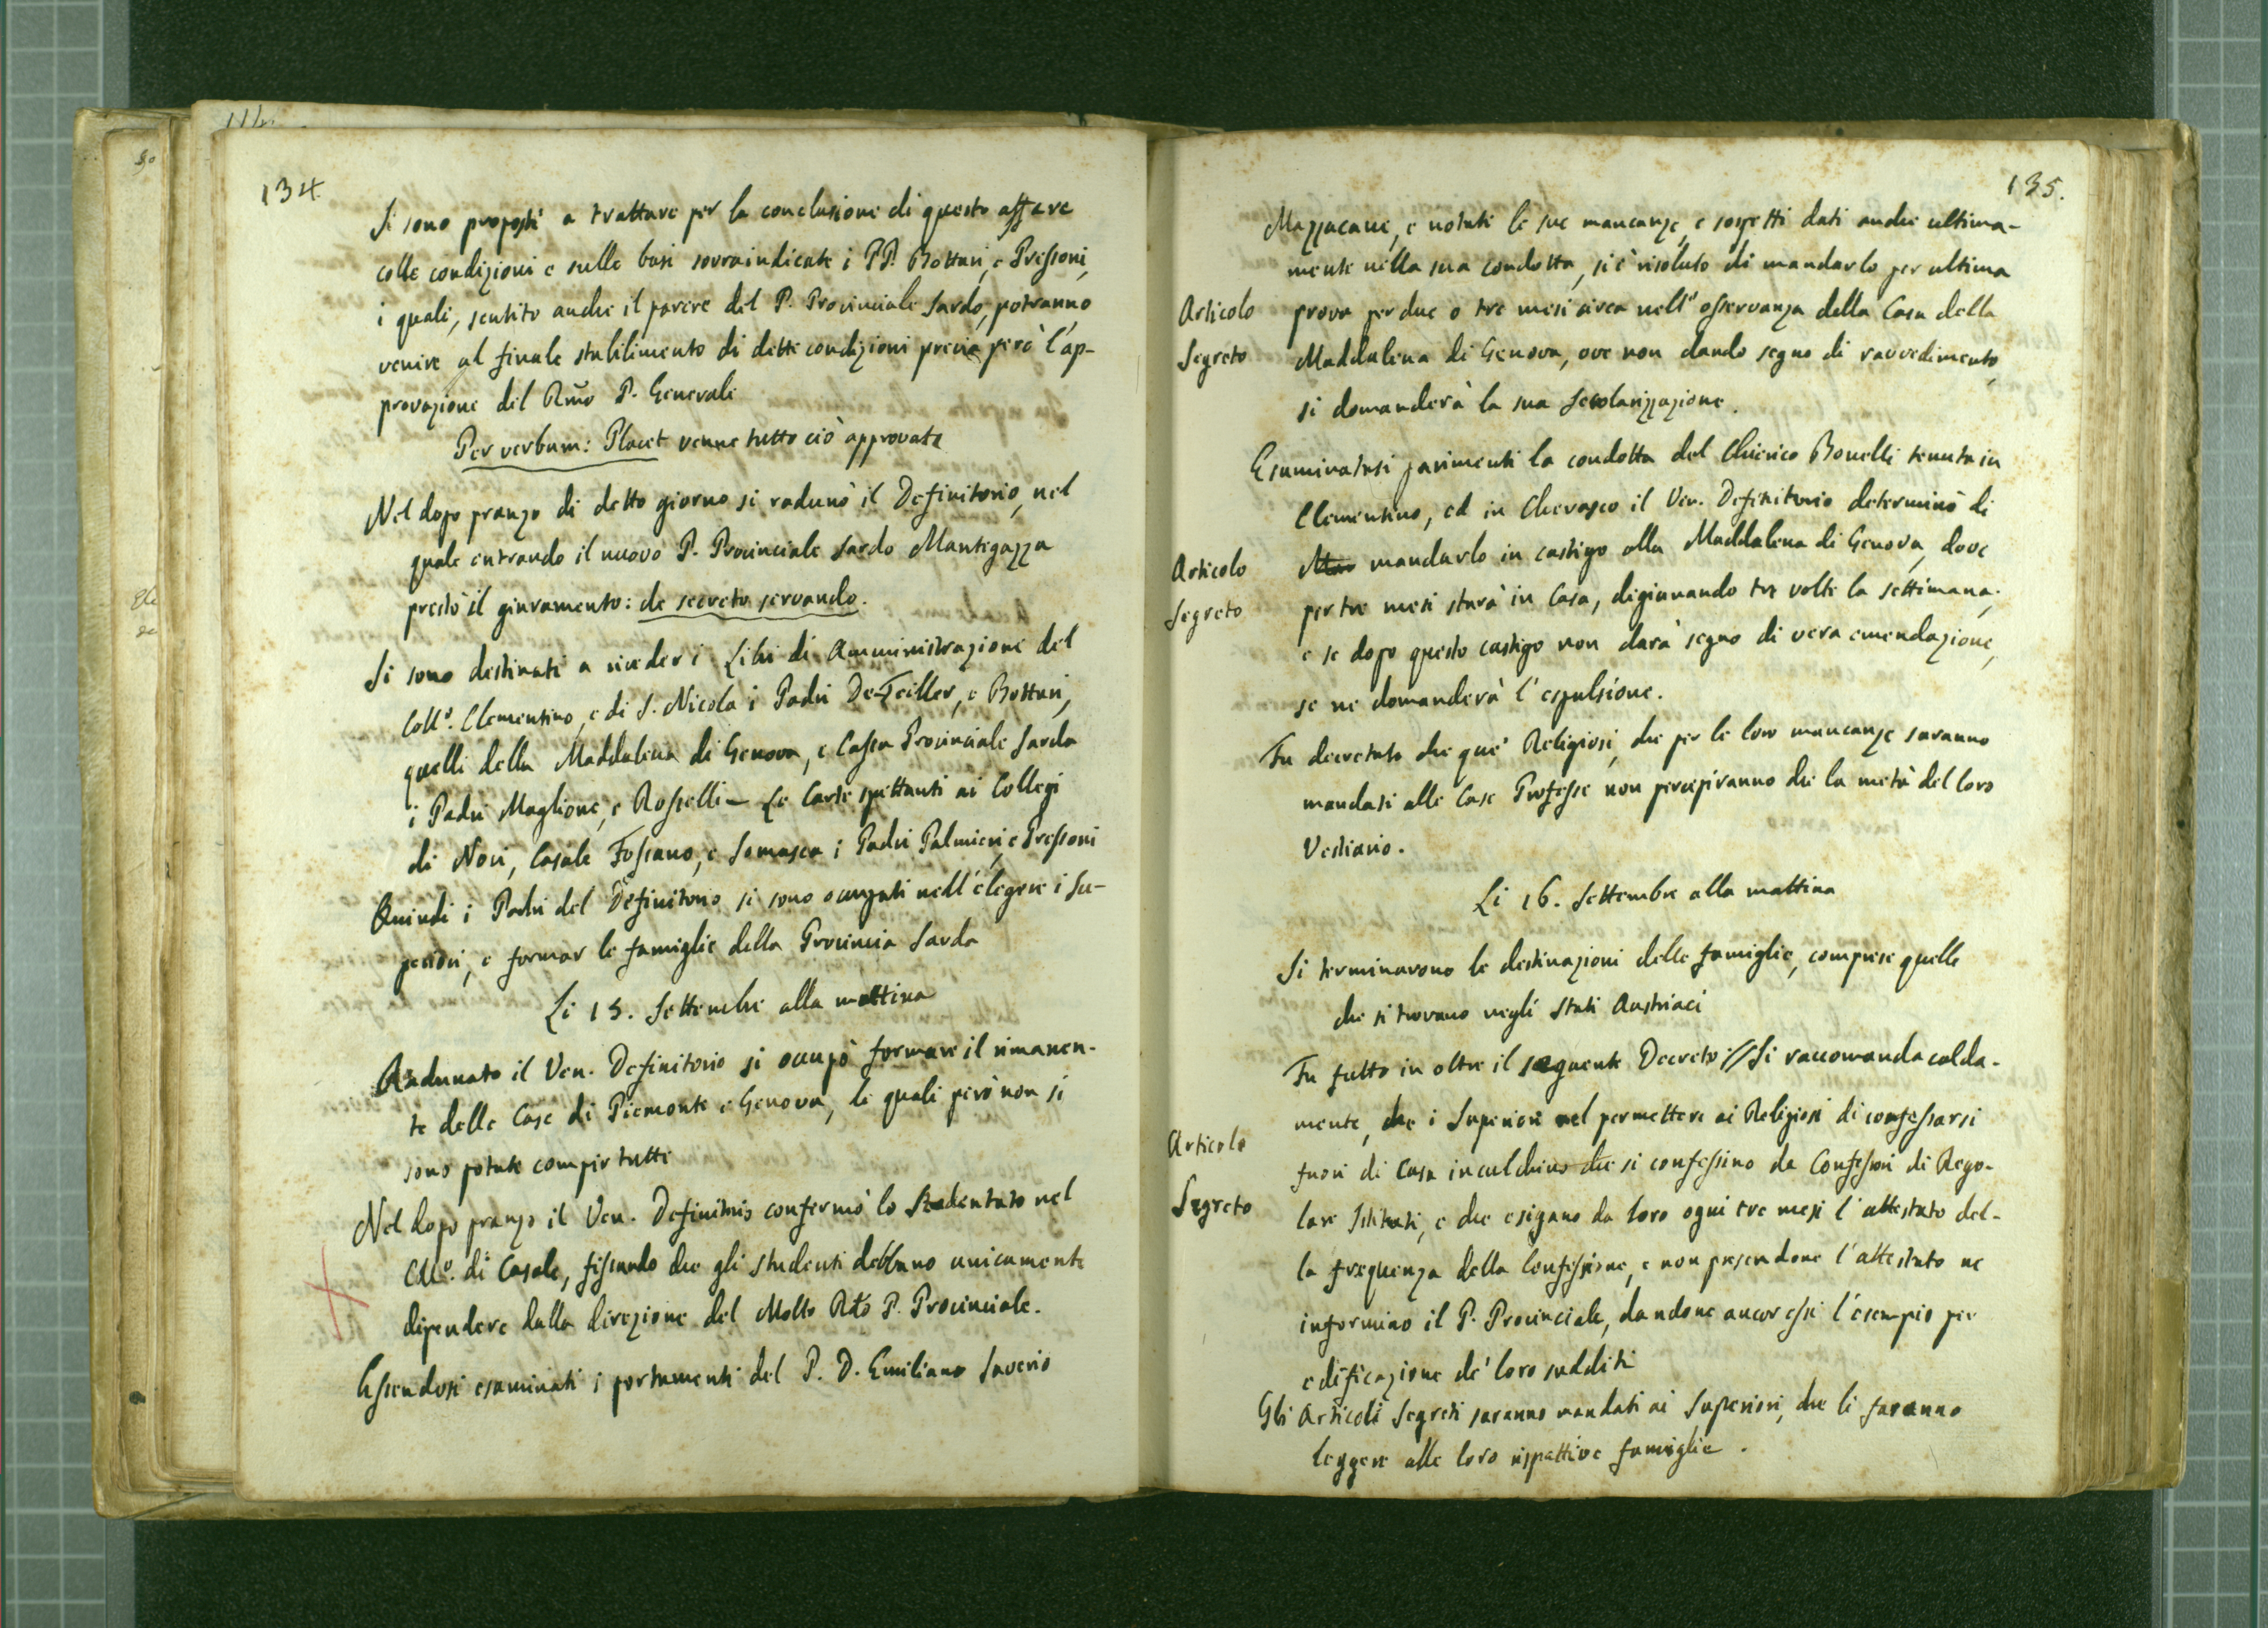 134.
Si sono proposti a trattare per la conclusione di questo affare
colle condizioni e sulle basi sovraindicate i PP. Bottari, e Pressoni,
i quali, sentito anche il parere del P. Provinciale Sardo, potranno
venire al finale stabilimento di dette condizioni previa però l'ap-
provazione del Rmo P. Generale
Per verbum: Placet venne tutto ciò approvato
Nel dopo pranzo di detto giorno si radunò il Definitorio, nel
quale entrando il nuovo P. Provinciale Sardo Mantegazza
prestò il giuramento: de secreto servando.
Si sono destinati a riveder i Libri di Amministrazione del
Coll.o Clementino, e di S. Nicola i Padri De-Feiller, e Bottari,
quelli della Maddalena di Genova, e Cassa Provinciale Sarda
i Padri Maglione, e Rosselli – Le Carte spettanti ai Collegi
di Novi, Casale Fossano, e Somasca i Padri Palmieri, e Pressoni
Quindi i Padri del Definitorio si sono occupati nell'elegere i Su-
periori, e formar le famiglie della Provincia Sarda
Li 15. Settembre alla mattina
Radunato il Ven. Definitorio si occupò formare il rimanen-
te delle Case di Piemonte e Genova, le quali però non si
sono potute compir tutte
Nel dopo pranzo il Ven. Definitorio confermò lo Studentato nel
Coll.o di Casale, fissando che gli studenti debbano unicamente
dipendere dalla direzione del Molto Rdo P. Provinciale.
Essendosi esaminati i portamenti del P. D. Emiliano Saverio
135.
Mazzacane, e notate le sue mancanze, e sospetti dati anche ultima-
mente nella sua condotta, si è risoluto di mandarlo per ultima
Articolo
Segreto
prova per due o tre mesi circa nell'osservanza della Casa della
Maddalena di Genova, ove non dando segno di ravvedimento,
si domanderà la sua secolarizzazione.
Esaminatasi parimenti la condotta del Chierico Bonelli tenuta in
Clementino, ed in Cherasco il Ven. Definitorio determinò di
Articolo
Segreto
mandarlo in castigo alla Maddalena di Genova, dove
per tre mesi starà in Casa, digiunando tre volte la settimana;
e se dopo questo castigo non darà segno di vera emendazione,
se ne domanderà l'espulsione.
Fu decretato che que' Religiosi, che per le loro mancanze saranno
mandati alle Case Professe non percepiranno che la metà del loro
Vestiario.
Li 16. Settembre alla mattina
Si terminarono le destinazioni delle famiglie, comprese quelle
che si trovano negli Stati Austriaci
Fu fatto in oltre il seguente Decreto: // Si raccomanda calda-
mente, che i Superiori nel permettere ai Religiosi di confessarsi
Articolo
Segreto
fuori di Casa inculchino che si confessino da Confessori di Rego-
lare Istituti, e che esigano da loro ogni tre mesi l'attestato del-
la frequenza della Confessione, e non presendone l'attestato ne
informino il P. Provinciale, dandone ancor essi l'esempio per
edificazione de' loro sudditi
Gli Articoli Segreti saranno mandati ai Superiori, che li faranno
leggere alle loro rispettive famiglie.